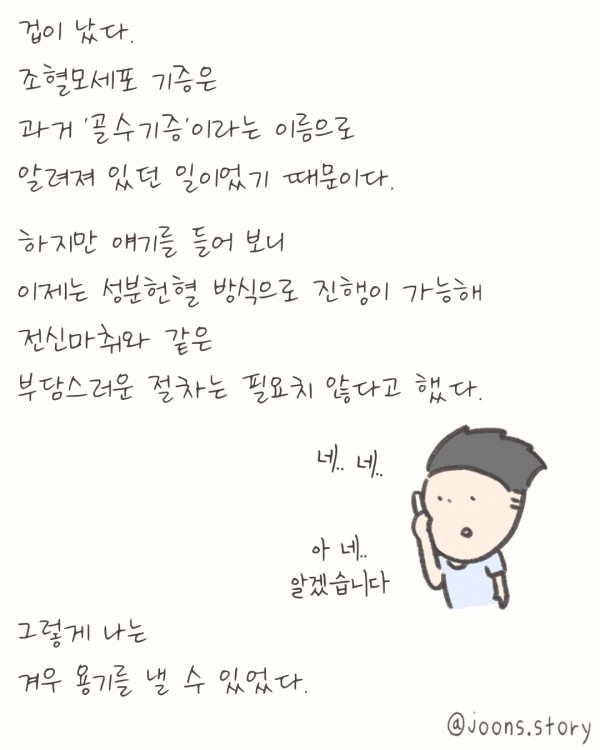 겁이 났다.
조혈모세포 기증은
과거 '골수기증'이라는 이름으로
알려져 있던 일이었기 때문이다.
하지만 얘기를 들어 보니
이제는 성분헌혈 방식으로 진행이 가능해
전신마취와 같은
부담스러운 절차는 필요치 않다고 했다.
네.. 네..
아 네..
알겠습니다
그렇게 나는
겨우 용기를 낼 수 있었다.
@joons.story